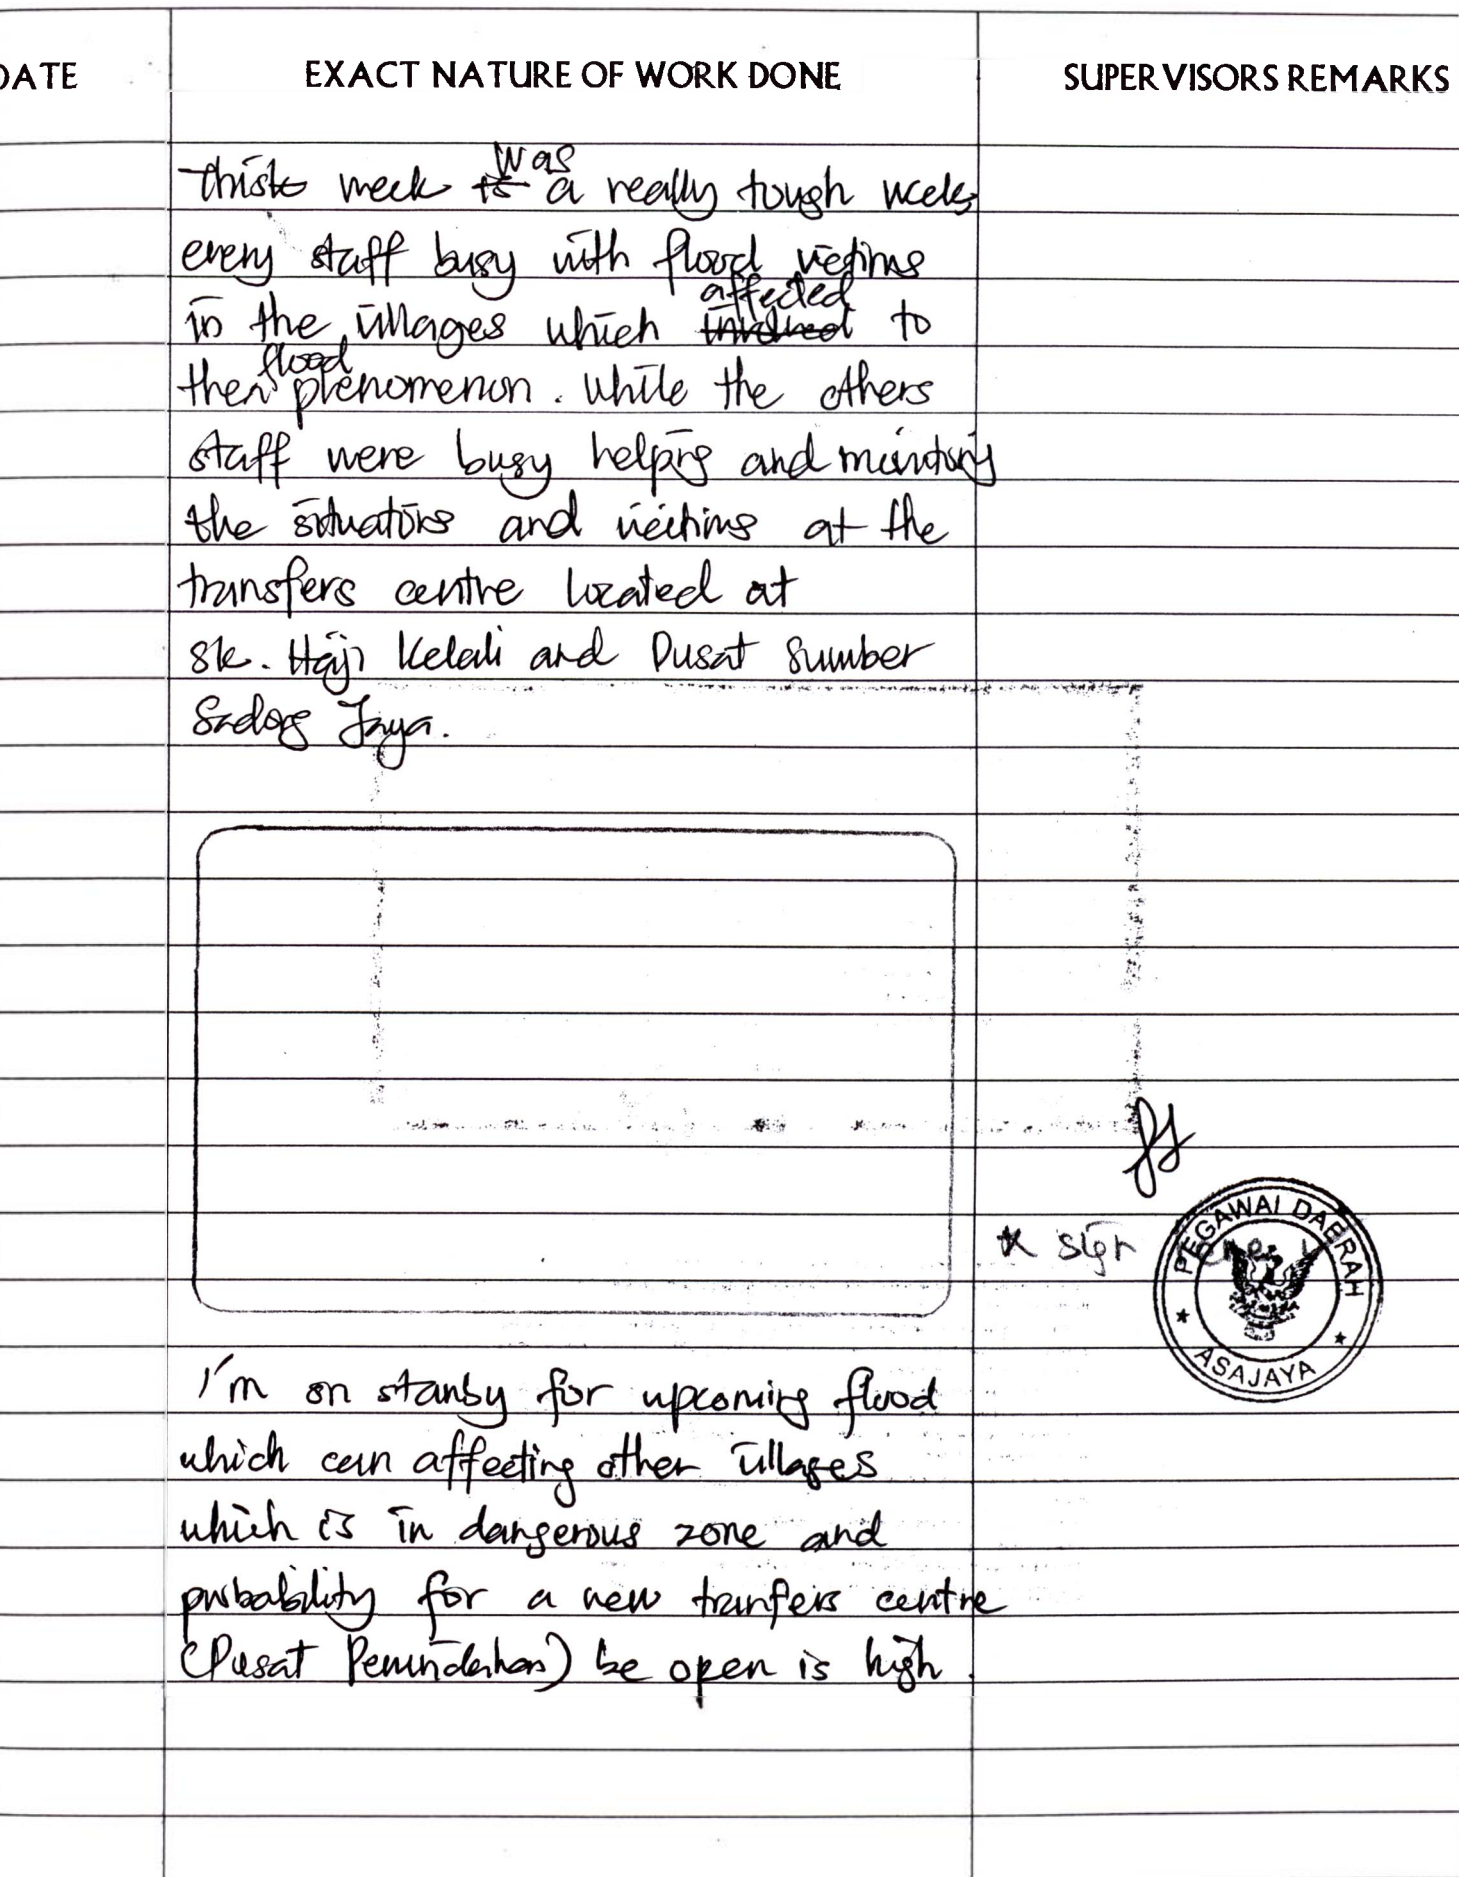 DATE EXACT NATURE OF WORK DONE SUPERVISORS REMARKS
this week was a really tough week,
every staff busy with flood victims
in the villages which affected to
then flood phenomenon. While the others
staff were busy helping and monitoring
the situations and victims at the
transfers centre located at
Sk. Haji Kelali and Pusat Sumber
Sadong Jaya.
* sign
PEGAWAI DAERAH
ASAJAYA
I'm on stanby for upcoming flood
which can affecting other villages
which is in dangerous zone and
probability for a new tranfers centre
(Pusat Pemindahan) be open is high.